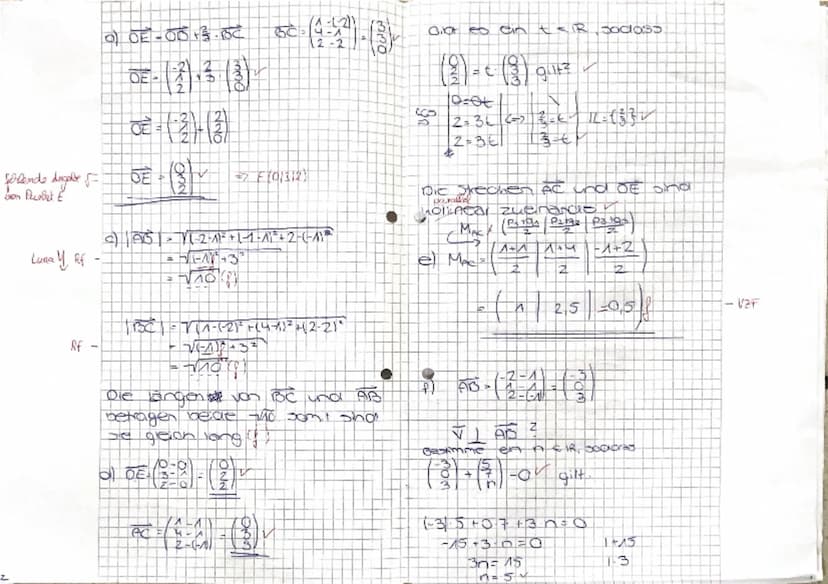 a) OE = OB + 2/3 · BC   BC = (1-(-2) / 4-1 / 2-2) = (3 / 3 / 0) ✓
OE = (-2 / 1 / 2) + 2/3 · (3 / 3 / 0) ✓
OE = (-2 / 1 / 2) + (2 / 2 / 0)
OE = (0 / 3 / 2) ✓ => E(0|3|2)
fehlende Angabe
von Punkt E
c) |AB| = √(-2-1)²+(-1-1)²+2-(-1)²
= √(-1)²+3²
Rf
= √10 (f)
|BC| = √(1-(-2)²+(4-1)²+(2-2)²
Rf - = √(-1)²+3²
= √10 (f)
Die längen von BC und AB
betragen beide √10 somit sind
sie gleich lang (f)
d) OE = (0-0 / 3-1 / 2-0) = (0 / 2 / 2) ✓
AC = (1-1 / 4-1 / 2-(-1)) = (0 / 3 / 3) ✓
Gibt es ein t ∈ ℝ, sodass
(0 / 2 / 2) = t · (0 / 3 / 3) gilt? ✓
|0=0t
<=> |2=3t| <=> |2/3=t| 𝕃={2/3} ✓
|2=3t| |2/3=t|
Die Strecken AC und OE sind
parallel
kolinear zueinander ✓
M_AC = (p1+q1/2 | p2+q2/2 | p3+q3/2)
e) M_AC = (1+1/2 | 1+4/2 | -1+2/2)
= (1 | 2,5 | =0,5) f
- VZF
f) AB = (-2-1 / 1-1 / 2-(-1)) = (-3 / 0 / 3)
v ⊥ AB ?
Bestimme ein n ∈ ℝ, sodass
(-3 / 0 / 3) + (5 / 7 / n) = 0 ✓ gilt.
(-3)·5+0·7+3·n=0
-15+3·n=0   |+15
3n=15   |·3
n=5 ✓
2